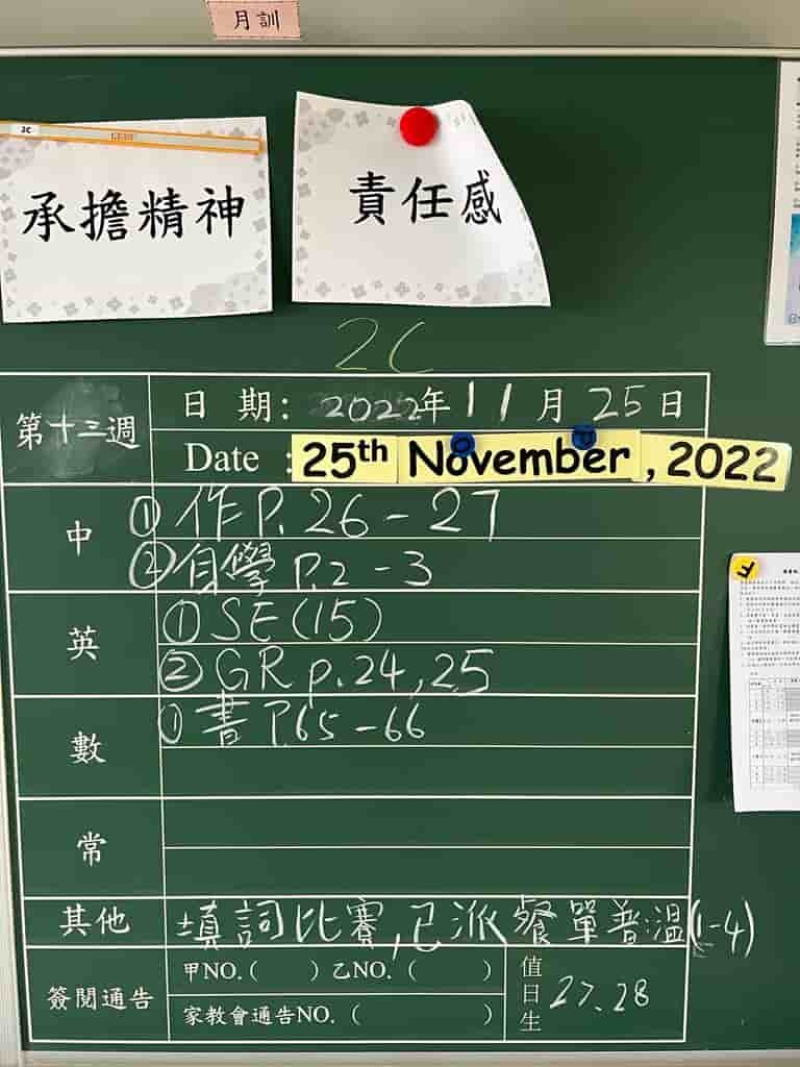 月訓
2C
承擔精神
責任感
2C
第十三週
日期：2022年11月25日
Date : 25th November, 2022
中
① 作 P. 26-27
② 自學 P.2-3
英
① SE (15)
② GR p.24, 25
數
① 書 P.65-66
常
其他
填詞比賽, 已派餐單 普溫(1-4)
簽閱通告
甲NO.(    ) 乙NO.(    )
家教會通告NO.(    )
值日生
27、28